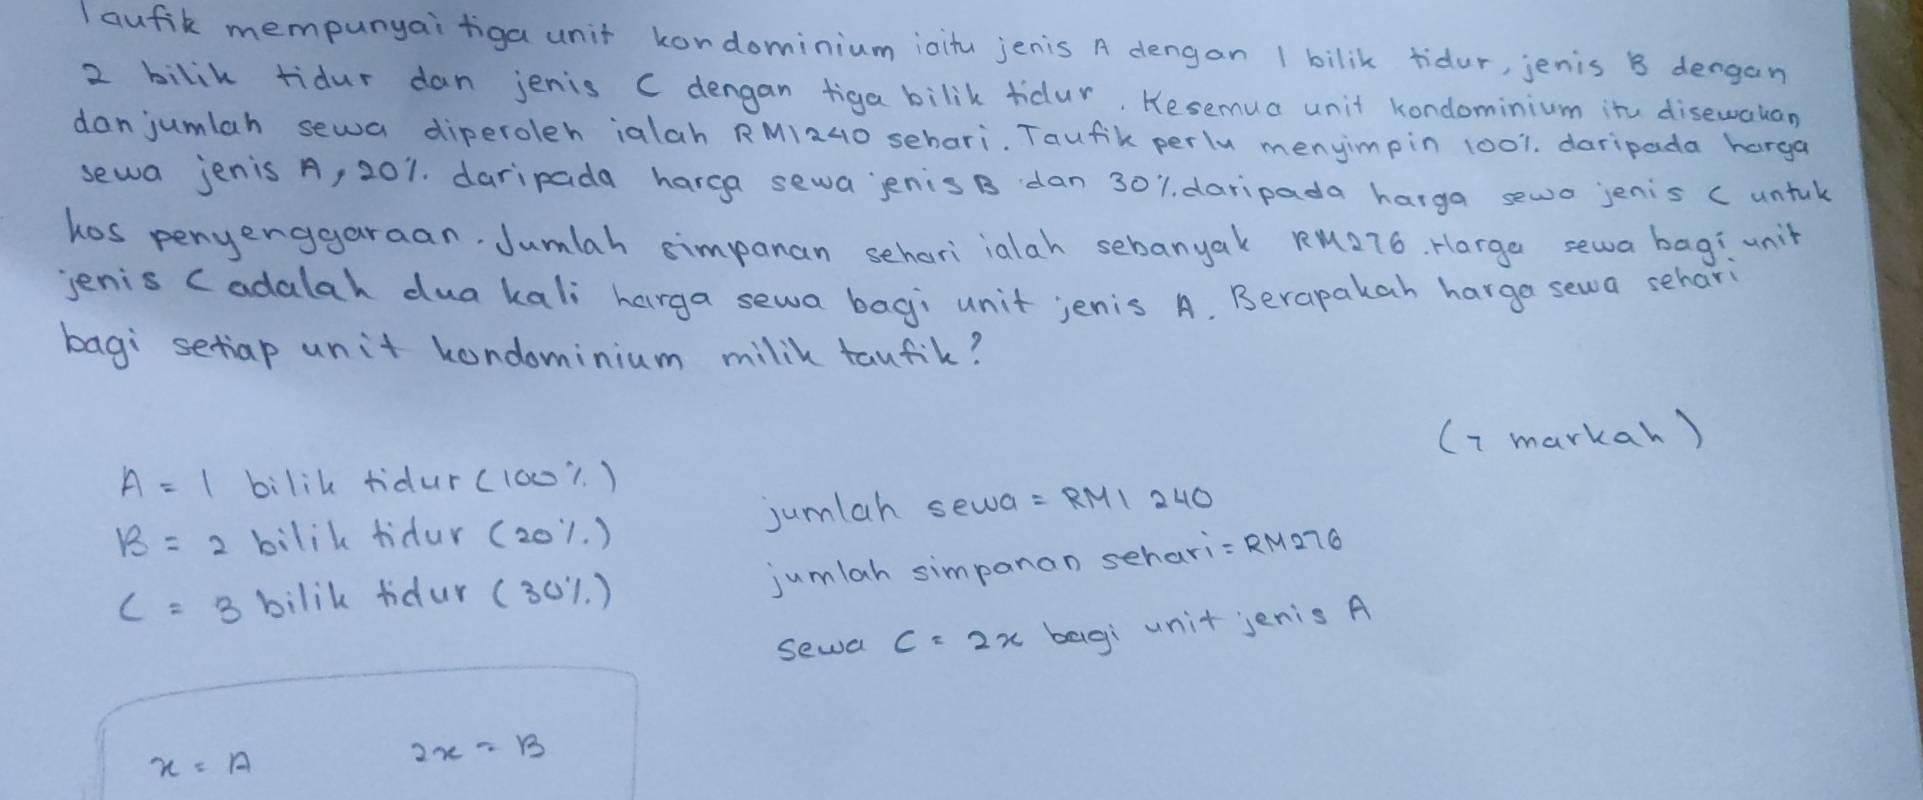 Taufik mempunyai tiga unit kondominium iaitu jenis A dengan 1 bilik tidur, jenis B dengan
2 bilik tidur dan jenis C dengan tiga bilik tidur. Kesemua unit kondominium itu disewakan
dan jumlah sewa diperoleh ialah RM1240 sehari. Taufik perlu menyimpin 100% daripada harga
sewa jenis A, 20% daripada harga sewa jenis B dan 30% daripada harga sewa jenis C untuk
kos penyenggaraan. Jumlah simpanan sehari ialah sebanyak RM276. Harga sewa bagi unit
jenis C adalah dua kali harga sewa bagi unit jenis A. Berapakah harga sewa sehari
bagi setiap unit kondominium milik taufik?
(7 markah)
A = 1 bilik tidur (100%)
B = 2 bilik tidur (20%)
C = 3 bilik tidur (30%)
jumlah sewa = RM1 240
jumlah simpanan sehari = RM276
sewa C = 2x bagi unit jenis A
x = A 2x = B